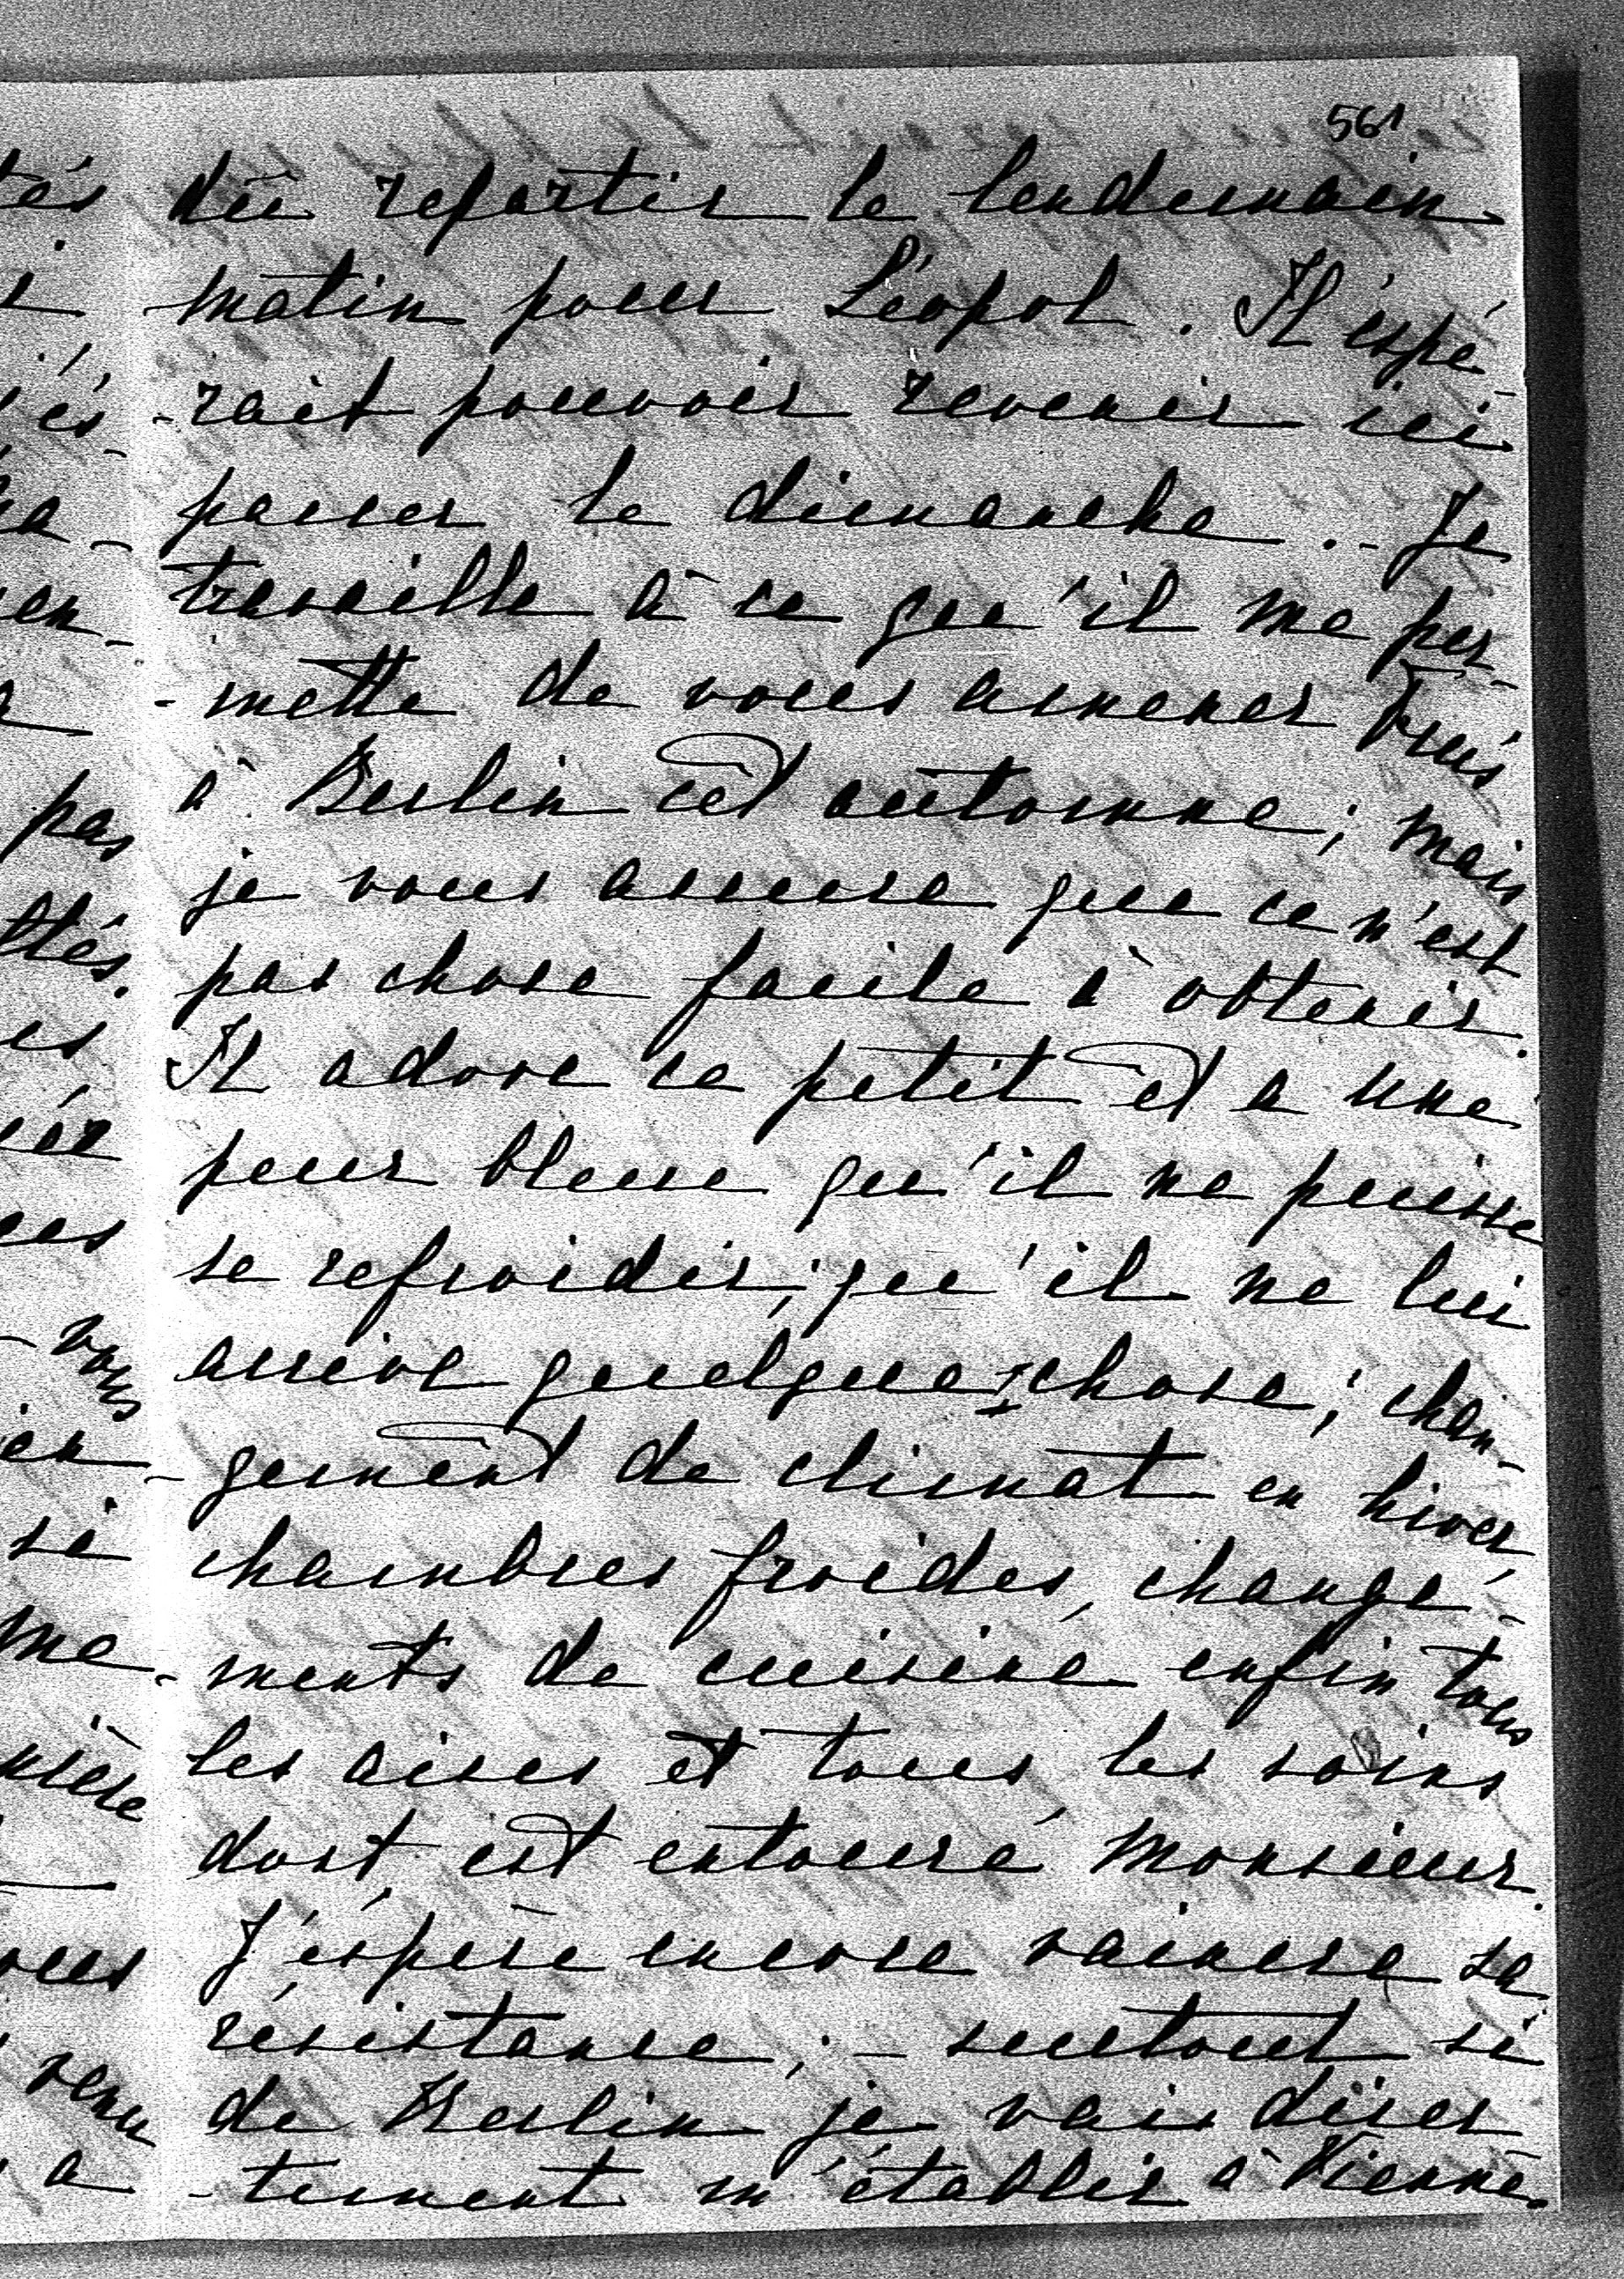 561
dû repartir le lendemain
matin pour Léopol. Il espé-
-rait pouvoir revenir ici
passer le dimanche. - Je
travaille à ce qu'il me per-
-mette de vous amener
à Berlin cet automne; mais
je vous assure que ce n'est
pas chose facile à obtenir.
Il adore ce petit et a une
peur bleue qu'il ne puisse
se refroidir; qu'il ne lui
arrive quelque chose; chan-
-gement de climat en hiver,
chambres froides, change-
-ments de cuisine enfin tous
les aises et tous les soins
dont est entouré Monsieur.
J'éspère encore vaincre sa
résistance; - surtout si
de Berlin je vais direc-
-tement m'établir à Vienne.